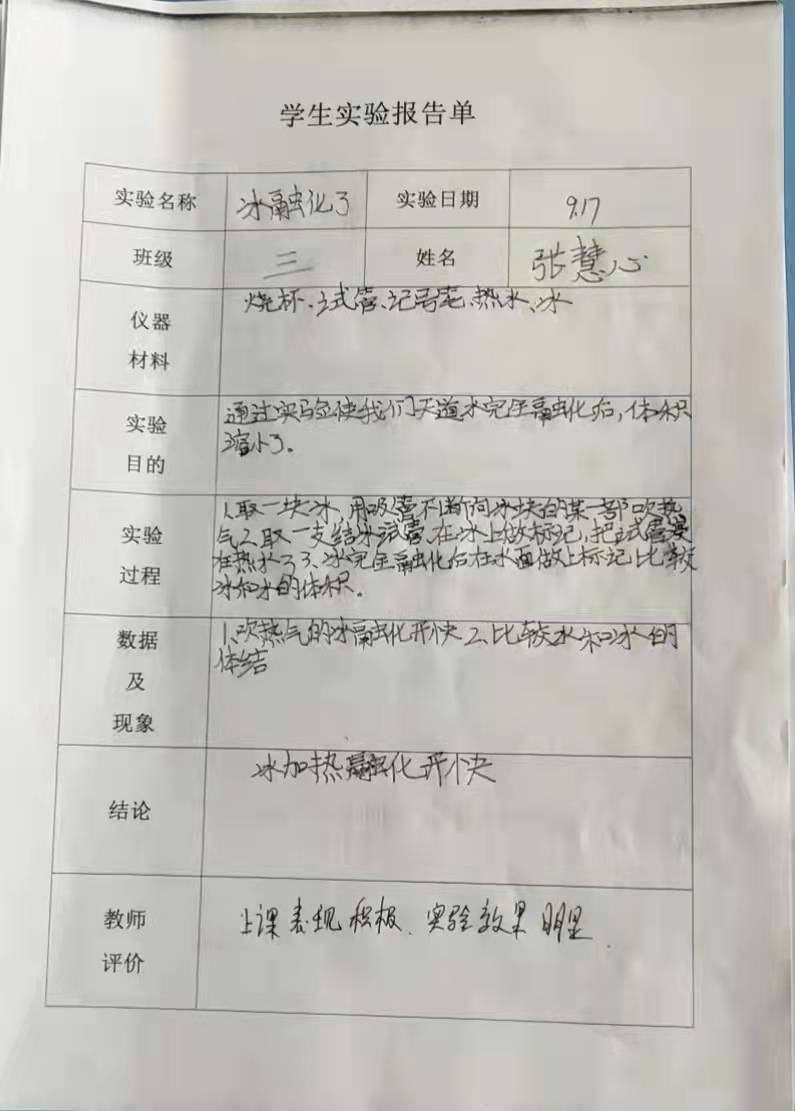 学生实验报告单
实验名称 冰融化了 实验日期 9.17
班级 三 姓名 张慧心
仪器
材料
烧杯、试管、记号笔、热水、冰
实验
目的
通过实验使我们知道水完全融化后,体积
缩小了。
实验
过程
1、取一块冰,用吸管不断向冰块的某一部吹热
气2、取一支结冰试管,在冰上做标记,把试管浸
在热水了3、冰完全融化后在水面做上标记比较
冰和水的体积。
数据
及
现象
1、吹热气的冰融化开快 2、比较水和冰的
体结
结论
冰加热融化开快
教师
评价
上课表现积极、实验效果明显.